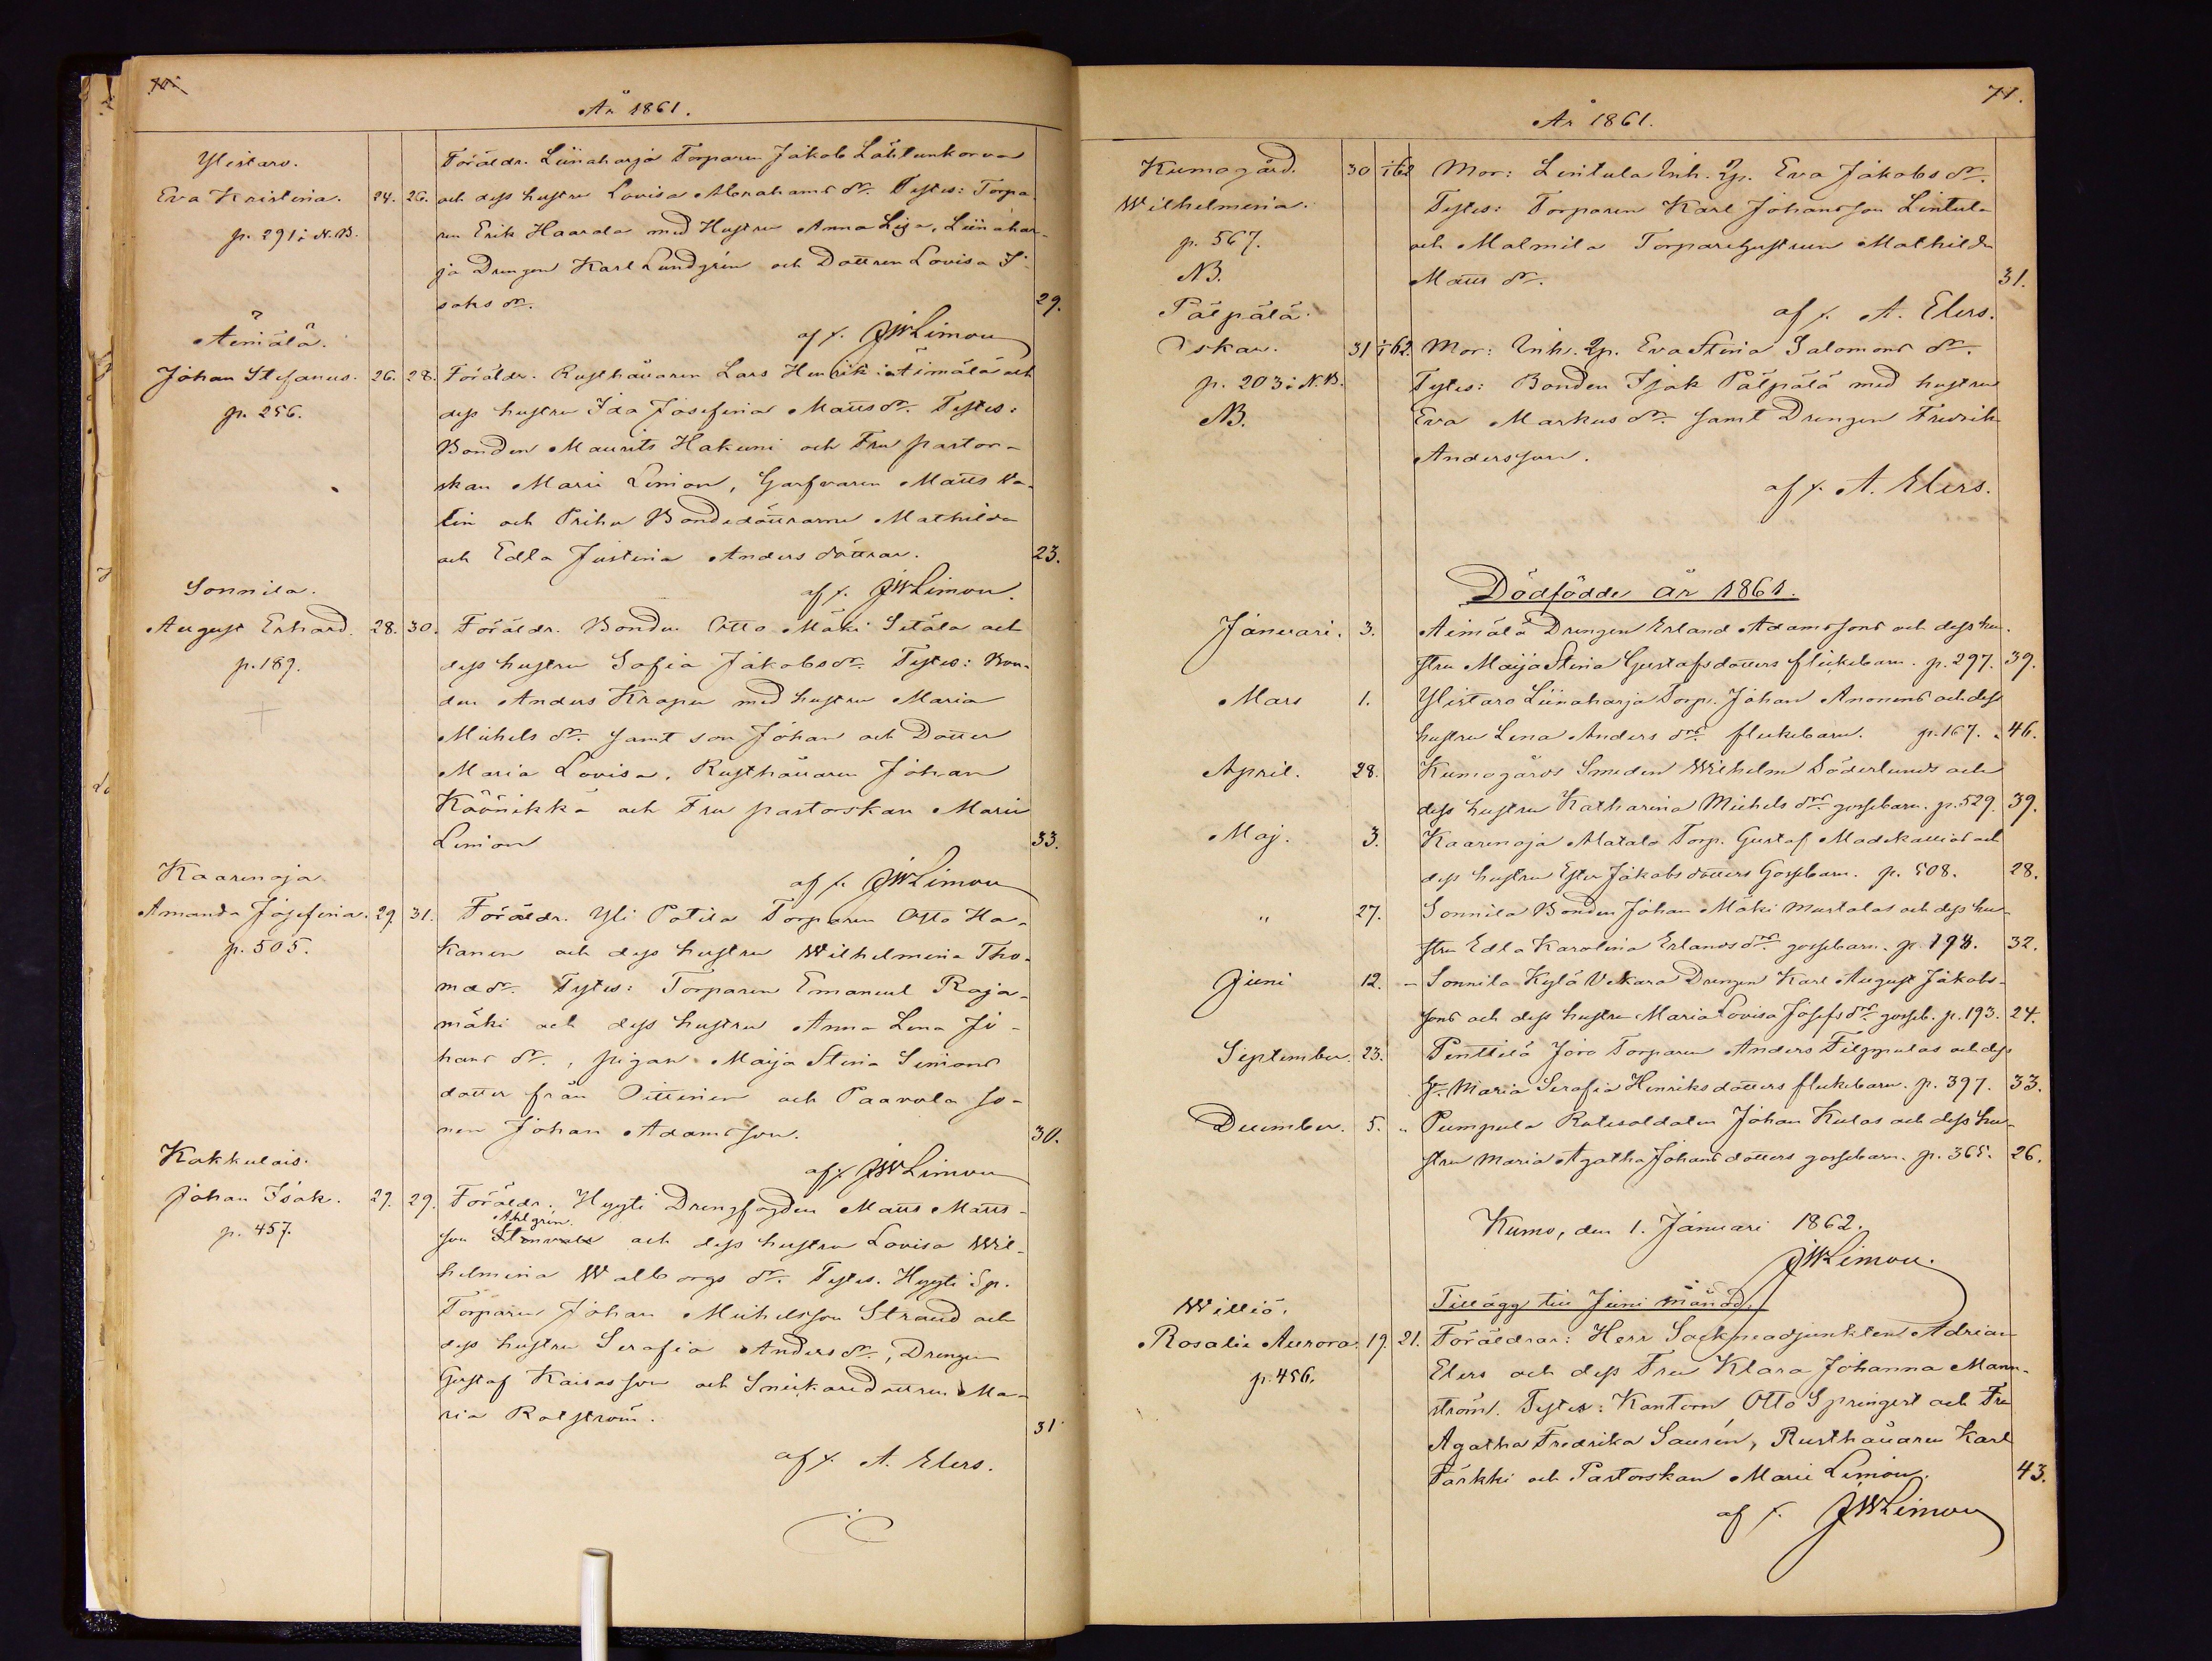 År 1861.
Ylistaro.
Eva Kristina. 24. 26.
p. 291: N.B.
Föräldr. Liinaharja Torparen Jakob Lähtenkorva
och dess hustru Lovisa Abrahams dr. Testes: Torpa-
ren Erik Haarala med Hustru Anna Lisa, Liinahar-
ja Drengen Karl Lundgrén och Dottren Lovisa I-
saks dr. 29.
af f. JWLimon
Äimälä.
Johan Stefanus. 26. 28.
p. 256.
Föräldr. Rusthållaren Lars Henrik Äimälä och
dess hustru Ida Josefina Matts dr. Testes:
Bonden Maurits Hakuni och Fru pastor-
skan Marie Limon, Garfvaren Matts Wa-
lin och Priha Bondedöttrarne Mathilda
och Edla Justina Anders döttrar. 23.
af f. JWLimon.
Sonnila.
August Erhard. 28. 30.
p. 189.
Föräldr. Bonden Otto Mäki Setälä och
dess hustru Sofia Jakobs dr. Testes: Bon-
den Anders Krapu med hustru Maria
Michels dr. samt son Johan och Dotter
Maria Lovisa, Rusthållaren Johan
Köönikkä och Fru pastorskan Marie
Limon 33.
af f. JWLimon
Kaarenoja
Amanda Josefina. 29 31.
p. 505.
Föräldr. Yli Potila Torparen Otto Ha-
kanen och dess hustru Wilhelmina Tho-
mæ dr. Testes: Torparen Emanuel Raja-
mäki och dess hustru Anna Lena Jo-
hans dr., pigan Maija Stina Simons
dotter från Pittinen och Paavola so-
nen Johan Adamsson. 30.
af f. JWLimon
Kakkulais.
Johan Isak. 29. 29.
p. 457.
Föräldr. Hyyti Drengfogden Matts Matts-
Ahlgrén.
son Stenvald och dess hustru Lovisa Wil-
helmina Walborgs dr. Testes. Hyyti Sp.
Torparen Johan Michelsson Strand och
dess hustru Serafia Anders dr., Drengen
Gustaf Kaisasson och Snickaredottren Ma-
ria Rolström. 31
af f. A. Elers.
71.
År 1861.
Kumogård. 30 1/1 62
Wilhelmina.
p. 567.
NB.
Mor: Lintula Inh. Qp. Eva Jakobs dr.
Testes: Torparen Karl Johansson Lintula
och Malmila Torparehustrun Mathilda
Matts dr. 31.
af f. A. Elers.
Pälpälä.
Oskar. 31 1/1 62.
p. 203: N.B.
NB.
Mor: Inh. Qp. Eva Stina Salomons dr.
Testes: Bonden Isak Pälpälä med hustru
Eva Markus dr. samt Drengen Fredrik
Andersson.
af f. A. Elers.
Dödfödde år 1861.
Januari. 3. Äimälä Drengen Erland Adamssons och dess hu-
stru Maija Stina Gustafsdotters flickebarn. p. 297. 39.
Mars 1. Ylistaro Liinaharja Torp. Johan Anonens och dess
hustru Lena Anders drs flickebarn. p. 167. 46.
April. 28. Kumogårds Smeden Wilhelm Söderlunds och
dess hustru Katharina Michels drs gossebarn. p. 529. 39.
Maj. 3. Kaarenoja Matala Torp. Gustaf Madekallios och
dess hustru Ester Jakobs dotters Gossebarn. p. 508. 28.
" 27. Sonnila Bonden Johan Mäki Mustalas och dess hu-
stru Edla Karolina Erlands drs gossebarn. p. 198. 32.
Juni 12. Sonnila Kylä Vekara Drengen Karl August Jakobs-
sons och dess hustru Maria Lovisa Josefs drs gosseb. p. 193. 24.
September. 23. Penttilä Jora Torparen Anders Filppulas och dess
hr. Maria Serafia Henriks dotters flickebarn. p. 397. 33.
December. 5. Pumpula Rotesoldaten Johan Kulas och dess hu-
stru Maria Agatha Johans dotters gossebarn. p. 365. 26.
Kumo, den 1. Januari 1862.
JWLimon.
Tillägg till Juni månad.
Williö.
Rosalie Aurora. 19. 21.
p. 456.
Föräldrar: Herr Sockneadjunkten Adrian
Elers och dess Fru Klara Johanna Mann-
ström. Testes: Kantorn Otto Springert och Fru
Agatha Fredrika Saurén, Rusthållaren Karl
Färkki och Pastorskan Marie Limon. 43.
af f. JWLimon